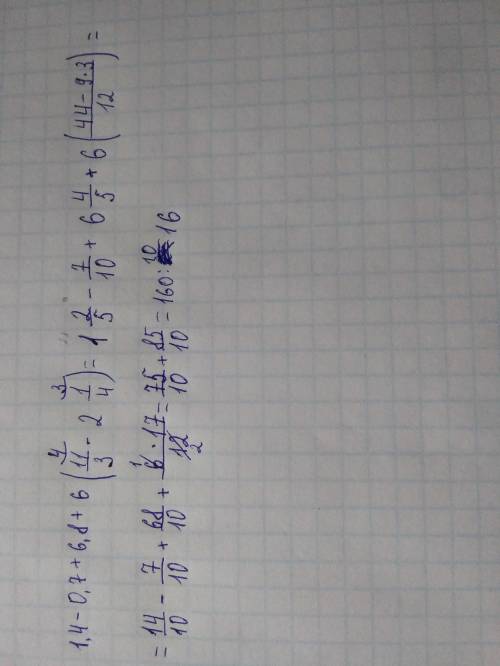 1,4 - 0,7 + 6,8 + 6 (11/3 - 2 1/4) = 1 2/5 - 7/10 + 6 4/5 + 6 (44 - 9·3 / 12) =
= 14/10 - 7/10 + 68/10 + 6·17/12 = 75/10 + 85/10 = 160 : 10 16